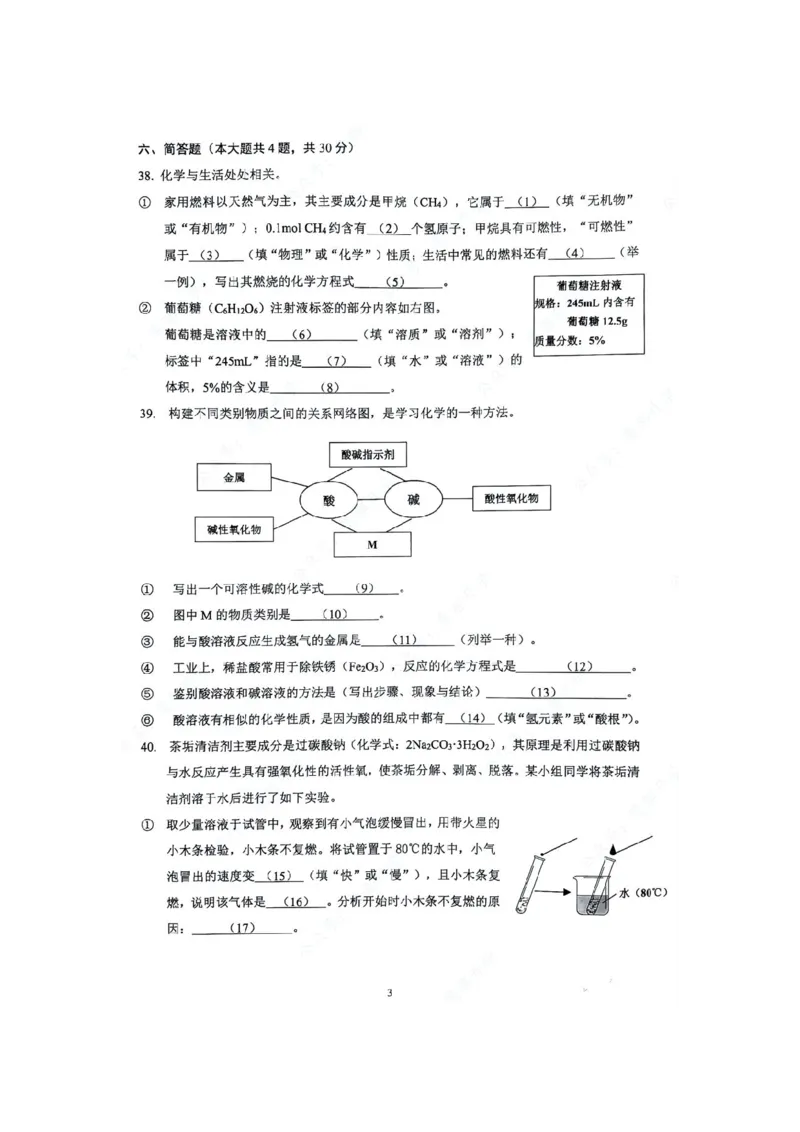 六、简答题（本大题共4题，共30分）
38. 化学与生活处处相关。
① 家用燃料以天然气为主，其主要成分是甲烷（CH₄），它属于 （1） （填“无机物”
或“有机物”）；0.1mol CH₄约含有 （2） 个氢原子；甲烷具有可燃性，“可燃性”
属于 （3） （填“物理”或“化学”）性质；生活中常见的燃料还有 （4） （举
一例），写出其燃烧的化学方程式 （5） 。
② 葡萄糖（C₆H₁₂O₆）注射液标签的部分内容如右图。
葡萄糖是溶液中的 （6） （填“溶质”或“溶剂”）；
标签中“245mL”指的是 （7） （填“水”或“溶液”）的
体积，5%的含义是 （8） 。
葡萄糖注射液
规格：245mL 内含有
葡萄糖 12.5g
质量分数：5%
39. 构建不同类别物质之间的关系网络图，是学习化学的一种方法。
酸碱指示剂
金属
酸
碱
酸性氧化物
碱性氧化物
M
① 写出一个可溶性碱的化学式 （9） 。
② 图中 M 的物质类别是 （10） 。
③ 能与酸溶液反应生成氢气的金属是 （11） （列举一种）。
④ 工业上，稀盐酸常用于除铁锈（Fe₂O₃），反应的化学方程式是 （12） 。
⑤ 鉴别酸溶液和碱溶液的方法是（写出步骤、现象与结论） （13） 。
⑥ 酸溶液有相似的化学性质，是因为酸的组成中都有 （14） （填“氢元素”或“酸根”）。
40. 茶垢清洁剂主要成分是过碳酸钠（化学式：2Na₂CO₃·3H₂O₂），其原理是利用过碳酸钠
与水反应产生具有强氧化性的活性氧，使茶垢分解、剥离、脱落。某小组同学将茶垢清
洁剂溶于水后进行了如下实验。
① 取少量溶液于试管中，观察到有小气泡缓慢冒出，用带火星的
小木条检验，小木条不复燃。将试管置于 80℃的水中，小气
泡冒出的速度变 （15） （填“快”或“慢”），且小木条复
燃，说明该气体是 （16） 。分析开始时小木条不复燃的原
因： （17） 。
水（80℃）
3